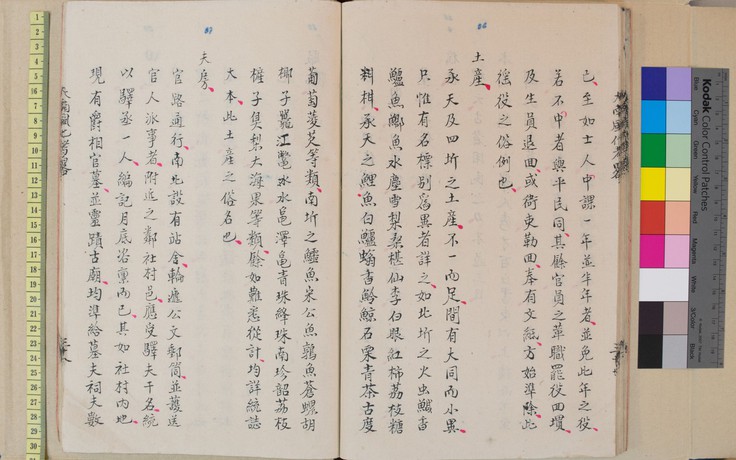 86
已至如士人中課一年並半年者並免此年之役
若不中者與平民同其餘官員之革職罷役回壩
及生員退回或衙吏勒回奉有文紙方始準除此
徭役之俗例也
土產
承天及四圻之土產不一而足間有大同而小異
只惟有名標別為異者詳之如北圻之火虫鱥香
鱸魚鄉魚水慶雪梨桑椹仙李白眼紅柿荔枝糖
料柑承天之鯉魚白鱸蝤
鯨石栗青茶古度
87
葡萄菱芡等類南圻之鱷魚宋公魚鶉魚蒼螺胡
椰子
江鱉水水黽澤黽青珠絳珠南珍韶荔枝
子
梨大海果等類餘如難悉從計均詳統誌
大本此土產之俗名也
夫房
官路通行南北設有站舍輪遞公文郵筒並護送
官人派事者附近之鄰社村邑應受驛夫干名統
以驛丞一人編記月底沿稟而已其如社村內地
現有爵相官墓並靈蹟古廟均準給墓夫祠夫數
Kodak Color Control Patches
Blue
Cyan
Green
Yellow
Red
Magenta
White
3/Color
Black